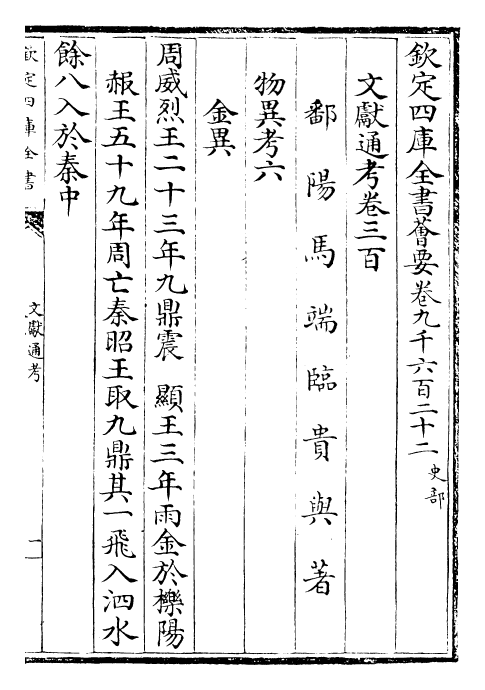 欽定四庫全書薈要卷九千六百二十二 史部
文獻通考卷三百
鄱陽馬端臨貴與著
物異考六
金異
周威烈王二十三年九鼎震 顯王三年雨金於櫟陽
赧王五十九年周亡秦昭王取九鼎其一飛入泗水
餘八入於秦中
欽定四庫全書
文獻通考
一